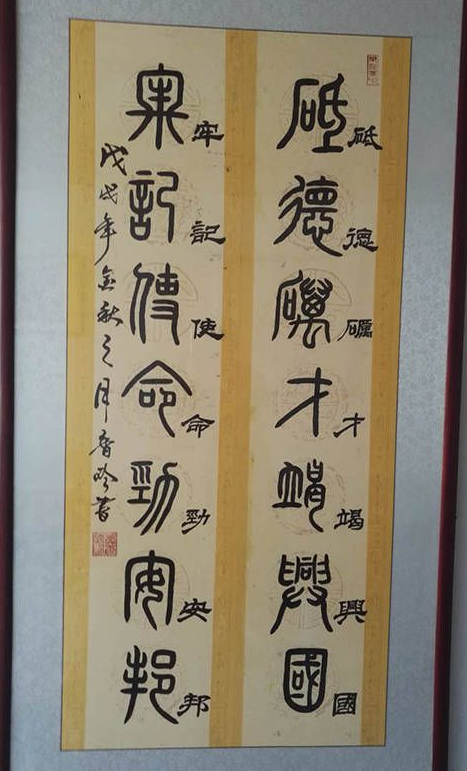 砥德礪才竭興國
砥德礪才竭興國
牢記使命勁安邦
牢記使命勁安邦
戊戌年金秋之月香吟書